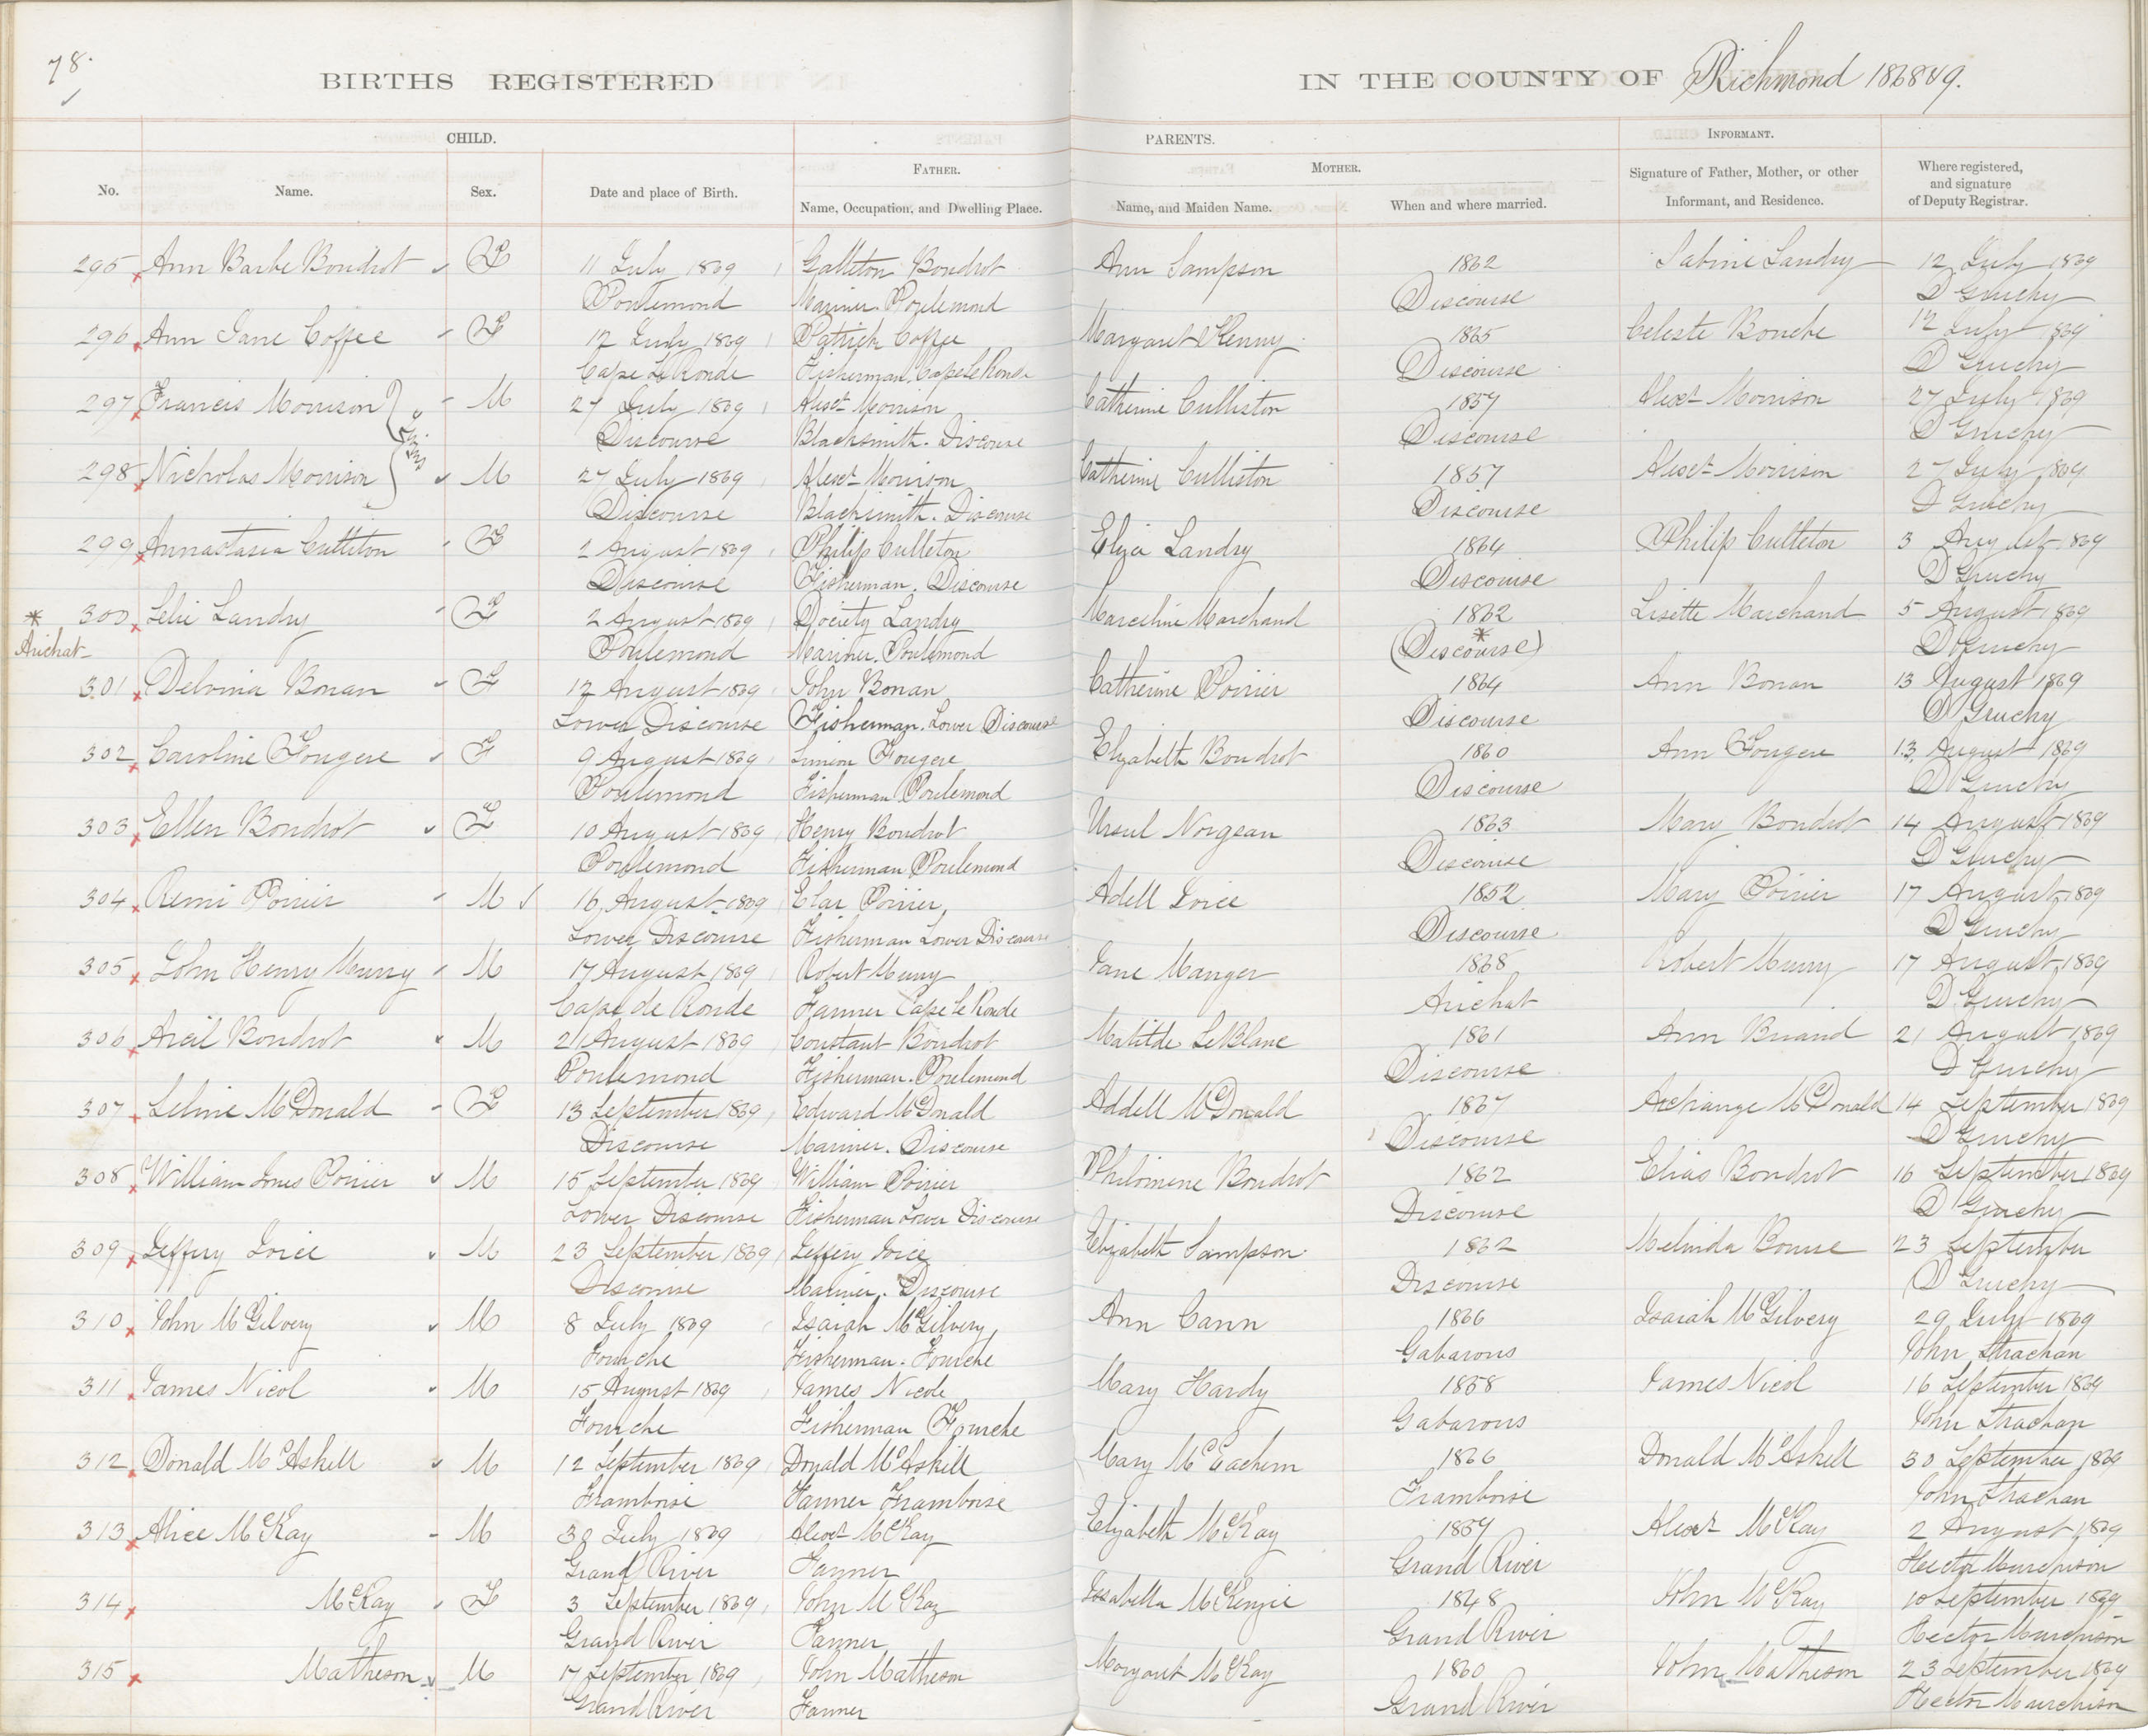 78.
BIRTHS REGISTERED IN THE COUNTY OF Richmond 1868 & 9.
CHILD. PARENTS. INFORMANT.
FATHER. MOTHER.
No. Name. Sex. Date and place of Birth. Name, Occupation, and Dwelling Place. Name, and Maiden Name. When and where married. Signature of Father, Mother, or other Informant, and Residence. Where registered, and signature of Deputy Registrar.
295 Ann Barbe Boudrot F 11 July 1869 Boudrot Ann Sampson 1862 Sabine Landry 12 July 1869
Poulemond Mariner Poulemond Discouse D Gruchy
296 Ann Jane Coffee F 12 July 1869 Patrick Coffee Margaret Kenny 1865 Celeste Bouche 12 July 1869
Cape Le Ronde Fisherman. Cape Le Ronde Discouse D Gruchy
297 Francis Morrison Twins M 27 July 1869 Alexr Morrison Catherine Culliston 1857 Alexr Morrison 27 July 1869
Discouse Blacksmith. Discouse Discouse D Gruchy
298 Nicholas Morrison M 27 July 1869 Alexr Morrison Catherine Culliston 1857 Alexr Morrison 27 July 1869
Discouse Blacksmith. Discouse Discouse D Gruchy
299 Annastasia Culliton F 2 August 1869 Philip Culleton Eliza Landry 1864 Philip Culleton 3 August 1869
Discouse Fisherman. Discouse Discouse D Gruchy
* 300 Landry F 2 August 1869 Landry Marceline Marchand 1862 Lisette Marchand 5 August 1869
Arichat Poulemond Mariner. Poulemond (Discouse) * D Gruchy
301 Delvina Bonan F 12 August 1869 John Bonan Catherine Poirier 1864 Ann Bonan 13 August 1869
Lower Discouse Fisherman. Lower Discouse Discouse D Gruchy
302 Caroline Fougere F 9 August 1869 Simion Fougere Elizabeth Boudrot 1860 Ann Fougere 13 August 1869
Poulemond Fisherman Poulemond Discouse D Gruchy
303 Ellen Boudrot F 10 August 1869 Henry Boudrot Ursul 1863 Mary Boudrot 14 August 1869
Poulemond Fisherman Poulemond Discouse D Gruchy
304 Remi Poirier M 16 August 1869 Elar Poirier Adell Joice 1852 Mary Poirier 17 August 1869
Lower Discouse Fisherman Lower Discouse Discouse D Gruchy
305 John Henry Murry M 17 August 1869 Robert Murry Jane Manger 1868 Robert Murry 17 August 1869
Cape de Ronde Farmer Cape Le Ronde Arichat D Gruchy
306 Boudrot M 21 August 1869 Constant Boudrot Matilde LeBlanc 1861 Ann Briand 21 August 1869
Poulemond Fisherman. Poulemond Discouse D Gruchy
307 Seline McDonald F 13 September 1869 Edward McDonald Addell McDonald 1867 Archange McDonald 14 September 1869
Discouse Mariner. Discouse Discouse D Gruchy
308 William Poirier M 15 September 1869 William Poirier Philomene Boudrot 1862 Elias Boudrot 16 September 1869
Lower Discouse Fisherman Lower Discouse Discouse D Gruchy
309 Jeffery Joice M 23 September 1869 Jeffery Joice Elizabeth Sampson 1862 Melinda Bourse 23 September
Discouse Mariner. Discouse Discouse D Gruchy
310 John McGilvery M 8 July 1869 Isaiah McGilvery Ann Cann 1866 Isaiah McGilvery 29 July 1869
Fourche Fisherman. Fourche Gabarous John Strachan
311 James Nicol M 15 August 1869 James Nicole Mary Hardy 1858 James Nicol 16 September 1869
Fourche Fisherman Fourche Gabarous John Strachan
312 Donald McAskill M 12 September 1869 Donald McAskill Mary McEachern 1866 Donald McAskell 30 September 1869
Framboise Farmer Framboise Framboise John Strachan
313 Alice McKay M 30 July 1869 Alexr McKay Elizabeth McKay 1859 Alexr McKay 2 August 1869
Grand River Farmer Grand River Hector Murchison
314 McKay F 3 September 1869 John McKay Issabella McKenzie 1848 John McKay 10 September 1869
Grand River Farmer Grand River Hector Murchison
315 Matheson M 17 September 1869 John Matheson Margaret McKay 1860 John Matheson 23 September 1869
Grand River Farmer Grand River Hector Murchison